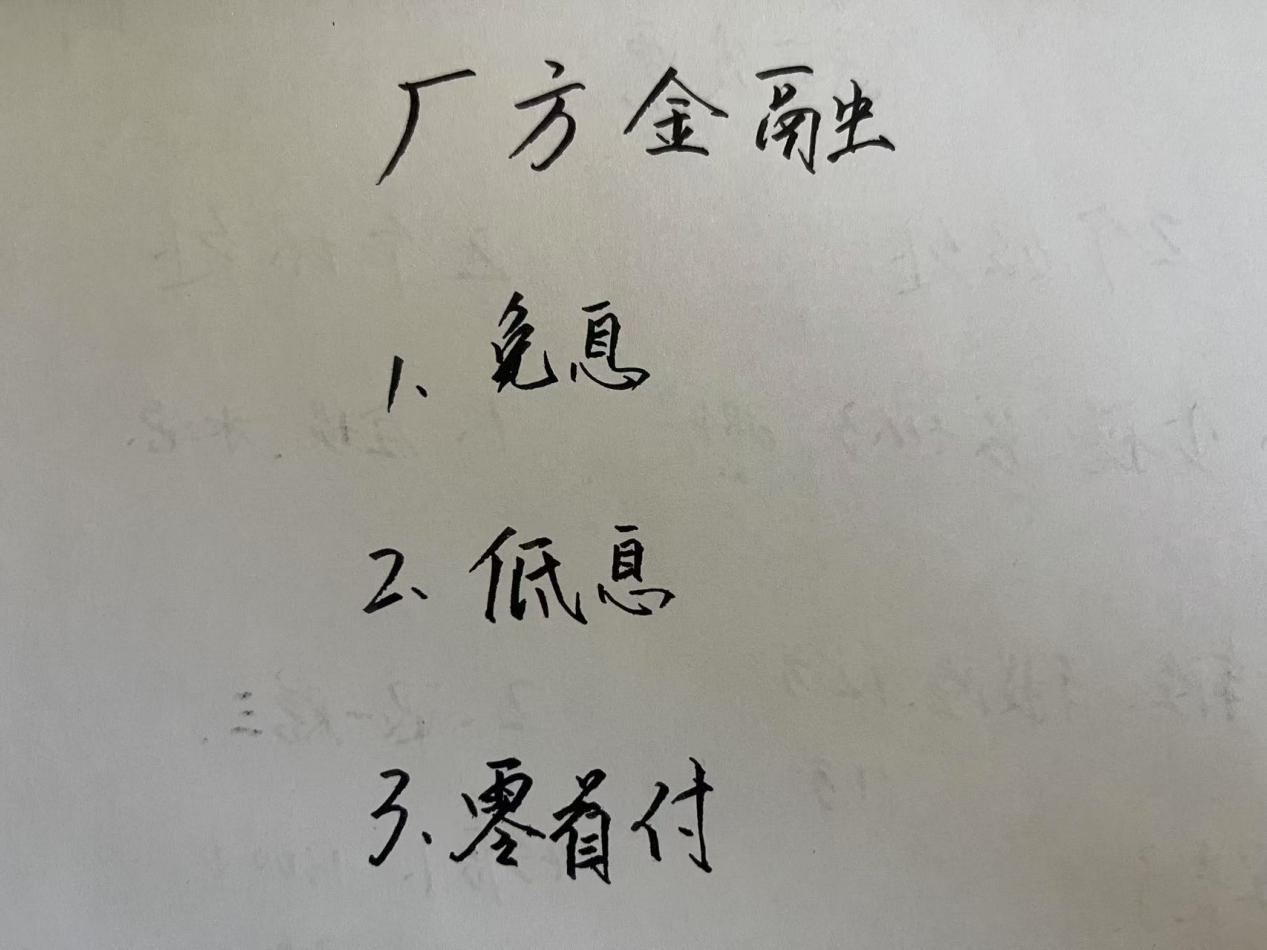 厂方金融
1、免息
2、低息
3、零首付